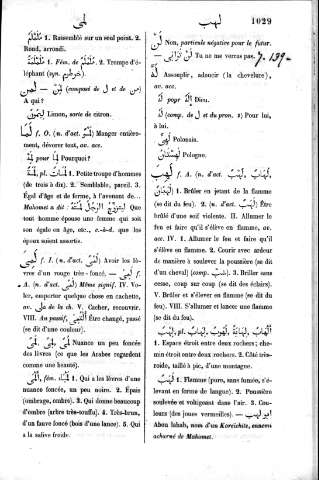 لمى
لهب
1029
مُلَمْلَمٌ 1. Rassemblé sur un seul point. 2.
Rond, arrondi.
مُلَمْلَمَةٌ 1. Fém. de مُلَمْلَمٌ 2. Trompe d'é-
léphant (syn. خرطوم).
لِمَنْ (composé de لِ et de مَنْ)
A qui?
ليمون Limon, sorte de citron.
لَمَا f. O. (n. d'act. لَمْوٌ) Manger entière-
ment, dévorer tout, av. acc.
لِمَ pour لِمَا Pourquoi?
لُمَةٌ pl. لُمَاتٌ 1. Petite troupe d'hommes
(de trois à dix). 2. Semblable, pareil. 3.
Égal d'âge et de forme, à l'avenant de...
Mahomet a dit : لِيَتَزَوَّجِ الرَّجُلُ لُمَتَهُ Que
tout homme épouse une femme qui soit
son égale en âge, etc., c.-à-d. que les
époux soient assortis.
لَمَى f. I. (n. d'act. لَمْيٌ) Avoir les lè-
vres d'un rouge très-foncé. — لَمِيَ f.
A. (n. d'act. لَمًى) Même signif. IV. Vo-
ler, emporter quelque chose en cachette,
av. على de la ch. V. Cacher, recouvrir.
VIII. Au passif, اُلْتُمِيَ Être changé, passé
(se dit d'une couleur).
لَمًى Nuance un peu foncée
des lèvres (ce que les Arabes regardent
comme une beauté).
أَلْمَى, fém. لَمْيَاءُ 1. Qui a les lèvres d'une
nuance foncée, un peu noire. 2. Épais
(ombrage, ombre). 3. Qui donne beaucoup
d'ombre (arbre très-touffu). 4. Très-brun,
d'un fauve foncé (bois d'une lance). 5. Qui
a la salive froide.
لَنْ Non, particule négative pour le futur.
لَنْ تَرَانِي Tu ne me verras pas. 7. 139.
لَهَّ Assouplir, adoucir (la chevelure),
av. acc.
لِلّٰهِ pour الله Dieu.
لَهُ (comp. de لِ et du pron. ه) Pour lui,
à lui.
Polonais.
Pologne.
لَهِبَ f. A. (n. d'act. لَهَبٌ, لَهْبٌ, لَهِيبٌ,
لَهَبَانٌ) 1. Brûler en jetant de la flamme
(se dit du feu). 2. (n. d'act. لَهَبٌ) Être
brûlé d'une soif violente. II. Allumer le
feu et faire qu'il s'élève en flamme, av.
acc. IV. 1. Allumer le feu et faire qu'il
s'élève en flamme. 2. Courir avec ardeur
de manière à soulever la poussière (se dit
d'un cheval) (comp. لهب). 3. Briller sans
cesse, coup sur coup (se dit des éclairs).
V. Brûler et s'élever en flamme (se dit du
feu). VIII. S'allumer et lancer une flamme
(se dit du feu).
لِهْبٌ pl. أَلْهَابٌ, لُهُوبٌ, لِهَابٌ, لِهَابَةٌ
1. Espace étroit entre deux rochers; che-
min étroit entre deux rochers. 2. Côté très-
roide, taillé à pic, d'une montagne.
لَهَبٌ 1. Flamme (pure, sans fumée, s'é-
levant en forme de langue). 2. Poussière
soulevée et voltigeant dans l'air. 3. Cou-
leurs (des joues vermeilles). — ابو لهب
Abou lahab, nom d'un Koreichite, ennemi
acharné de Mahomet.